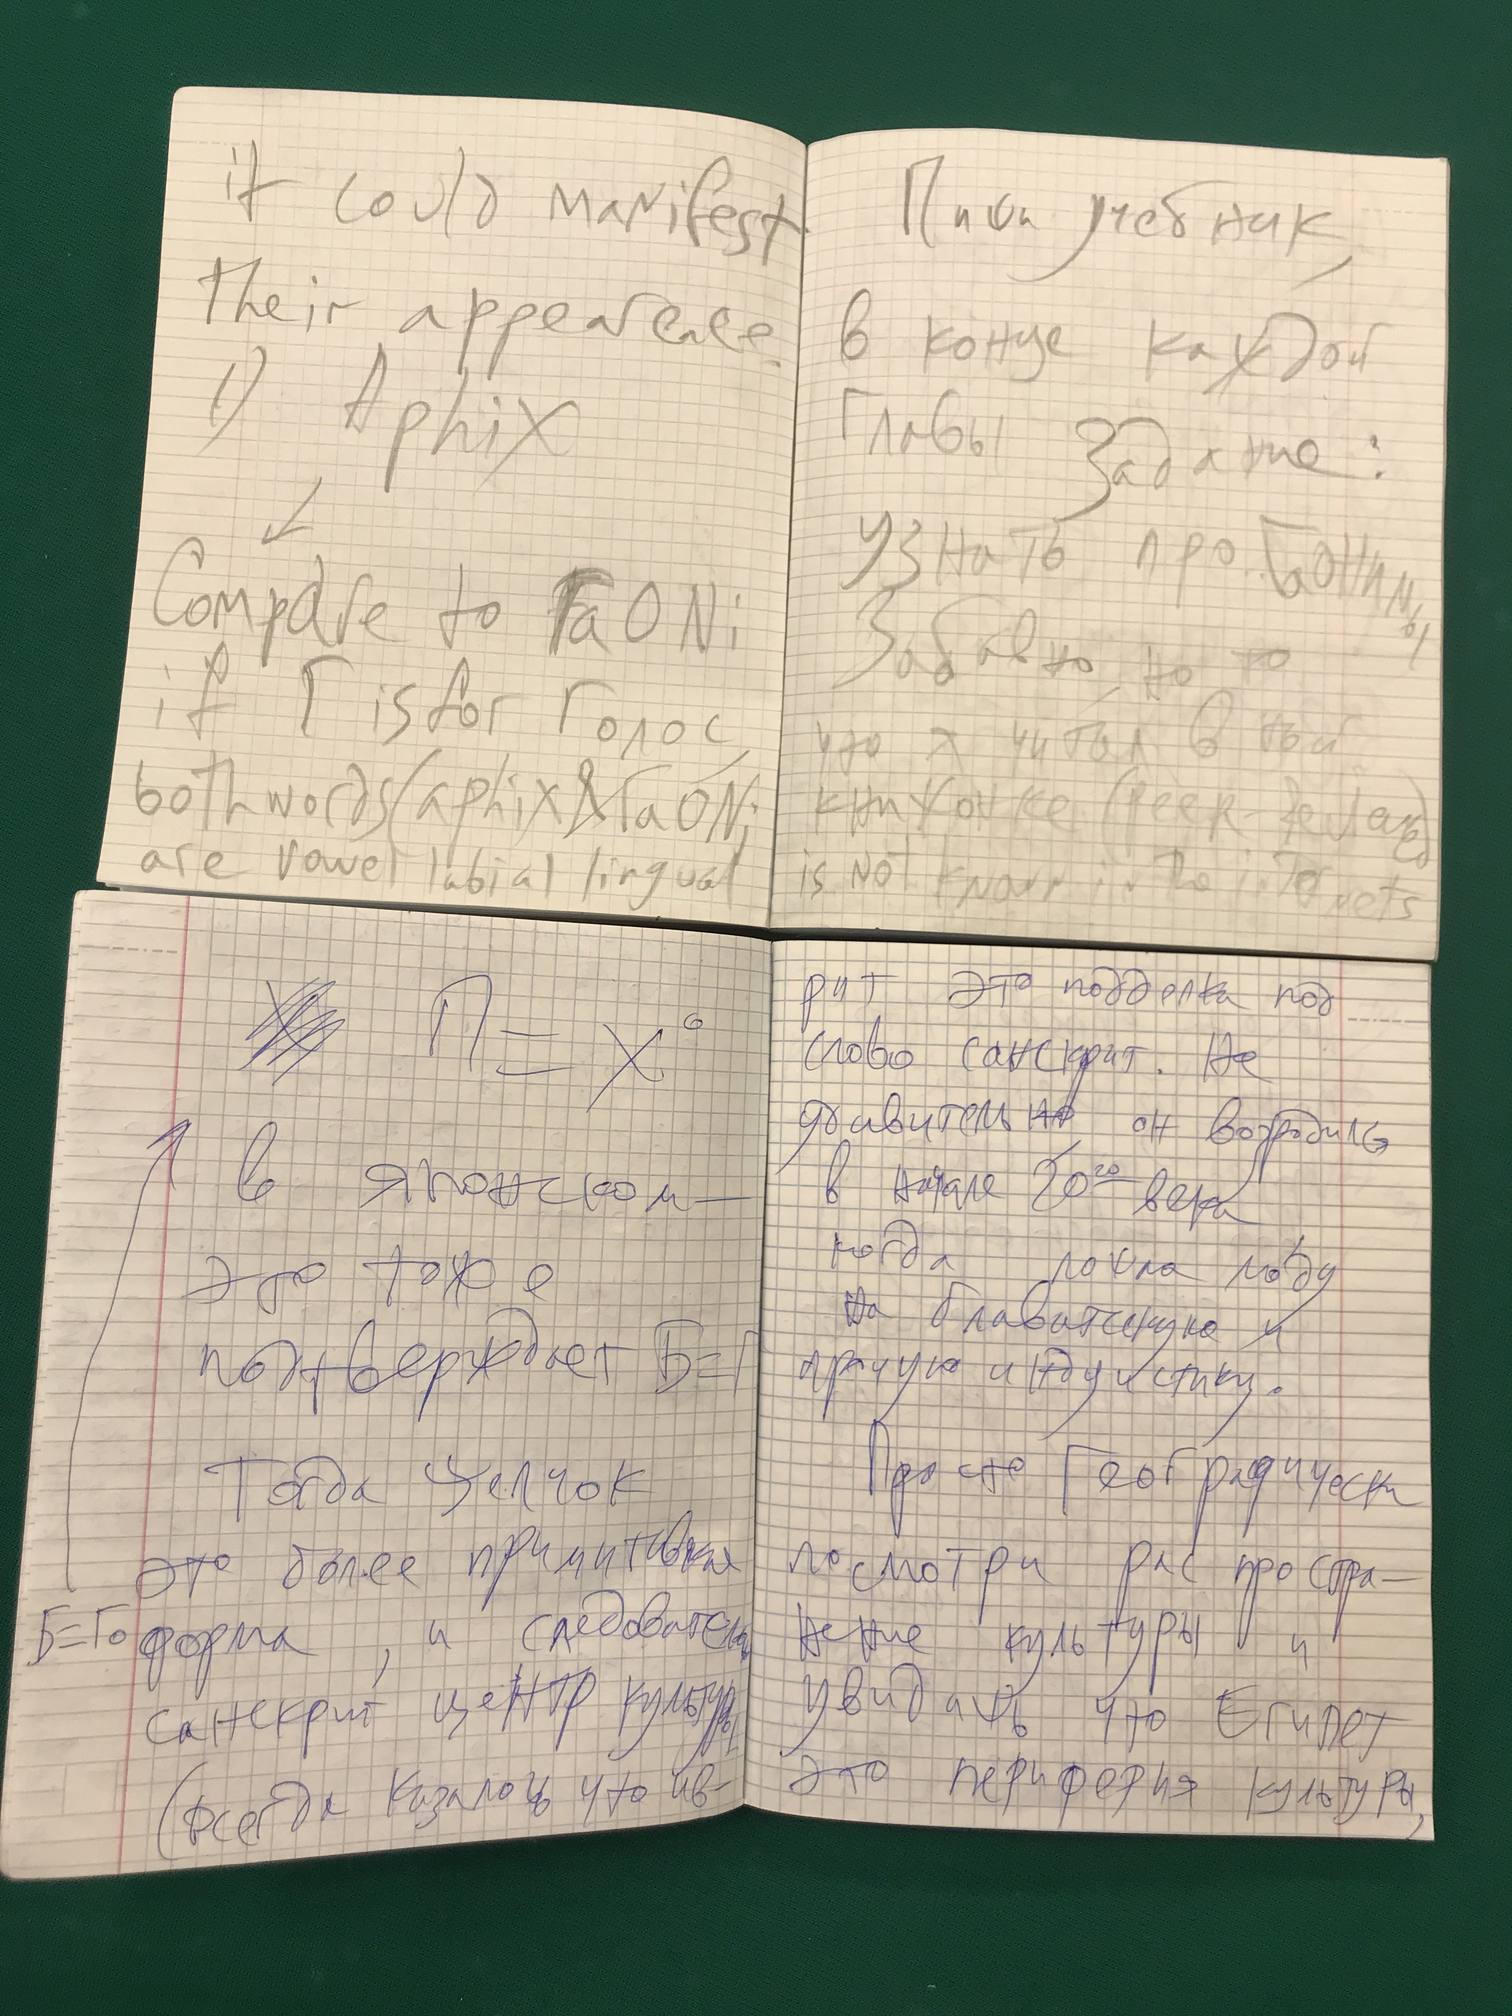 it could manifest
their appearence.
1) Aphix
Compare to ГaONi
if Г is for Голос,
both words (aphix & ГaONi
are vowel labial lingual
Пиши учебник,
в конце каждой
главы Задание:
узнать про
Забавно, но то
что я читал в той
книжонке (peer-
is not known in the internets
П = X°
в японском —
это тоже
подтверждает Б=Г
Тогда Щелчок
это более примитивная
Б=Го
форма, и следовательно
санскрит центр культуры
(всегда казалось что ив-
рит это подделка под
слово санскрит. Не
удивительно он возродился
в начале 20го века
когда пошла мода
на блаватскую и
прочую индуистику.
Просто Географически
посмотри распростра-
нение культуры и
увидишь что Египет
это периферия культуры,